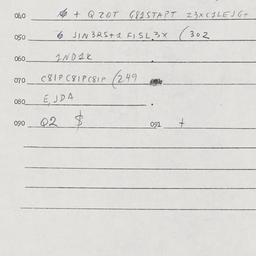 040 $ + QZOT G81STAPT Z3XC1LEJG+
050 6 JIN3RS+1 FISL3X (302
060 2ND1K
070 C81PC81PC81P (249
080 E,JDA .
090 Q2 $ 091 +